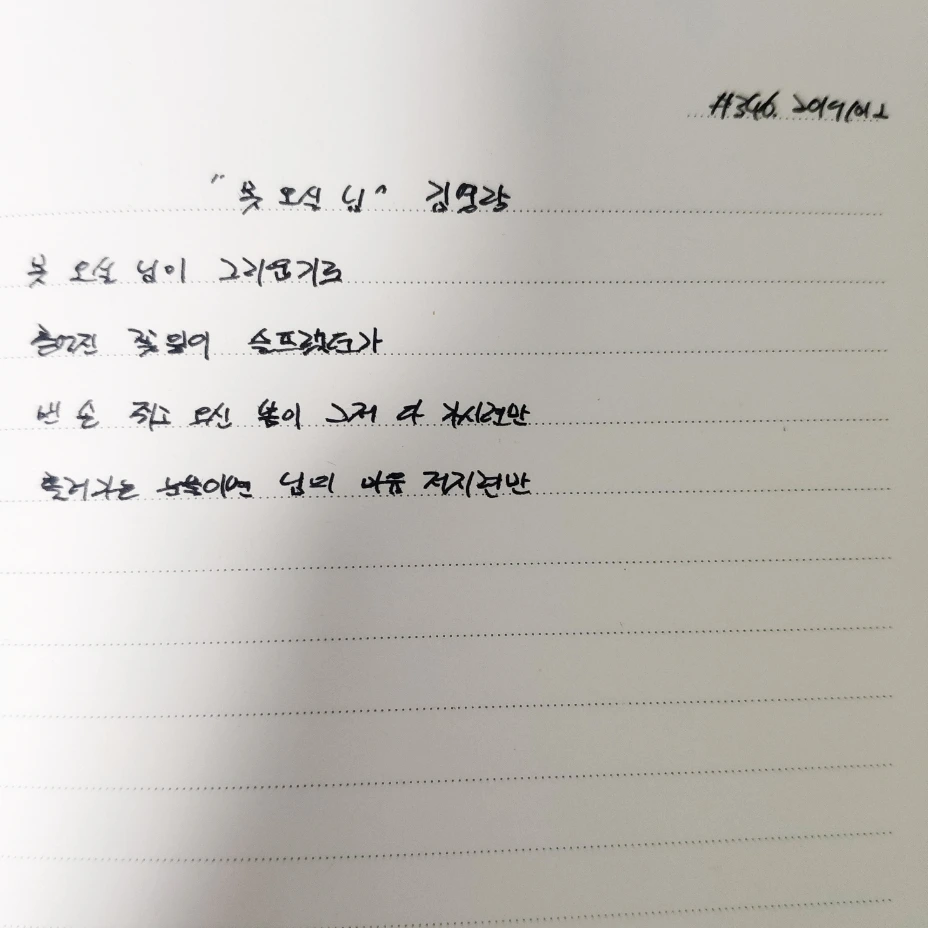 #346. 20191012
"못 오실 님" 김영랑
못 오실 님이 그리웁기로
흩어진 꽃잎이 슬프랬던가
빈 손 쥐고 오신 봄이 그저 다 가시련만
흘러가는 눈물이면 님의 마음 저지련만